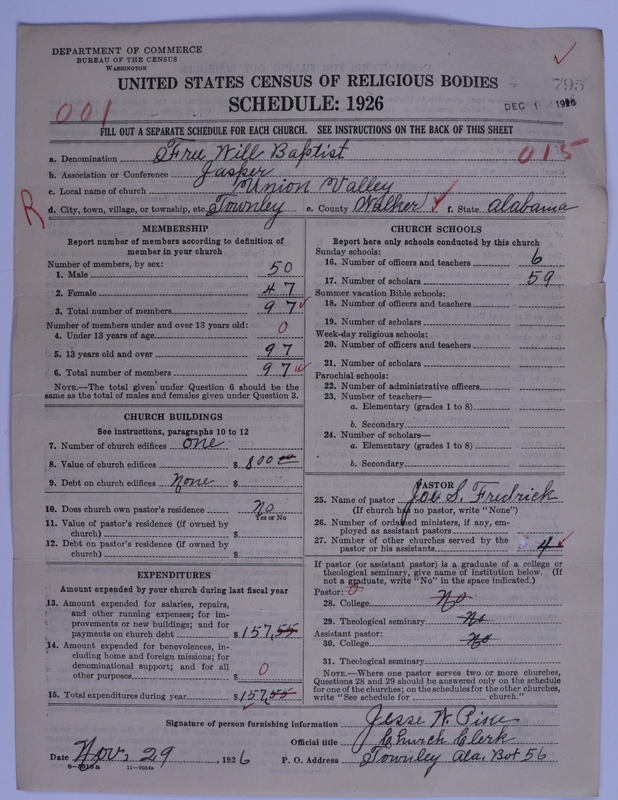 DEPARTMENT OF COMMERCE
BUREAU OF THE CENSUS
WASHINGTON
795
UNITED STATES CENSUS OF RELIGIOUS BODIES
SCHEDULE: 1926
DEC 1 1926
001
FILL OUT A SEPARATE SCHEDULE FOR EACH CHURCH. SEE INSTRUCTIONS ON THE BACK OF THIS SHEET
a. Denomination Free Will Baptist 015
b. Association or Conference Jasper
c. Local name of church Union Valley
R d. City, town, village, or township, etc. Townley e. County Walker f. State Alabama
MEMBERSHIP
Report number of members according to definition of member in your church
Number of members, by sex:
1. Male 50
2. Female 47
3. Total number of members 97
Number of members under and over 13 years old:
4. Under 13 years of age 0
5. 13 years old and over 97
6. Total number of members 97
NOTE.—The total given under Question 6 should be the
same as the total of males and females given under Question 3.
CHURCH BUILDINGS
See instructions, paragraphs 10 to 12
7. Number of church edifices one
8. Value of church edifices $ 800 00
9. Debt on church edifices None $
10. Does church own pastor's residence No
Yes or No
11. Value of pastor's residence (if owned by
church) $
12. Debt on pastor's residence (if owned by
church) $
EXPENDITURES
Amount expended by your church during last fiscal year
13. Amount expended for salaries, repairs,
and other running expenses; for im-
provements or new buildings; and for
payments on church debt $ 157.55
14. Amount expended for benevolences, in-
cluding home and foreign missions; for
denominational support; and for all
other purposes $ 0
15. Total expenditures during year $ 157.55
CHURCH SCHOOLS
Report here only schools conducted by this church
Sunday schools:
16. Number of officers and teachers 6
17. Number of scholars 59
Summer vacation Bible schools:
18. Number of officers and teachers
19. Number of scholars
Week-day religious schools:
20. Number of officers and teachers
21. Number of scholars
Parochial schools:
22. Number of administrative officers
23. Number of teachers—
a. Elementary (grades 1 to 8)
b. Secondary
24. Number of scholars—
a. Elementary (grades 1 to 8)
b. Secondary
PASTOR
25. Name of pastor Joe S. Fredrick
(If church has no pastor, write "None")
26. Number of ordained ministers, if any, em-
ployed as assistant pastors
27. Number of other churches served by the
pastor or his assistants 4
If pastor (or assistant pastor) is a graduate of a college or
theological seminary, give name of institution below. (If
not a graduate, write "No" in the space indicated.)
Pastor: 0
28. College No
29. Theological seminary No
Assistant pastor:
30. College No
31. Theological seminary
NOTE.—Where one pastor serves two or more churches,
Questions 28 and 29 should be answered only on the schedule
for one of the churches; on the schedules for the other churches,
write "See schedule for church."
Signature of person furnishing information Jesse W. Pine
Official title Church Clerk
Date Nov. 29, 1926 P. O. Address Townley Ala. Box 56